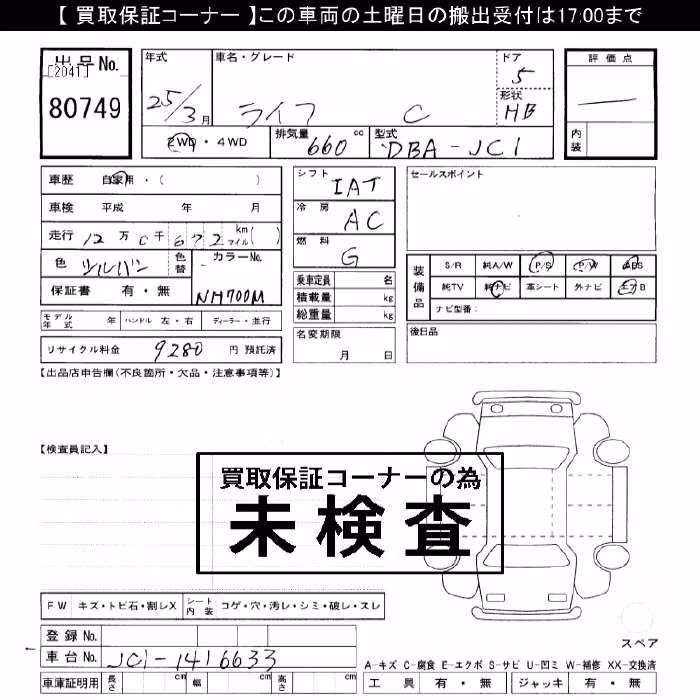 【 買取保証コーナー 】この車両の土曜日の搬出受付は17:00まで
出品No. [2041] 80749
年式 25/3月
車名・グレード ライフ C
ドア 5
形状 HB
評価点 ―
内装
2WD・4WD
排気量 660 cc
型式 DBA-JC1
車歴 自家用・( )
車検 平成 年 月
走行 12万0千672 km マイル( )
色 シルバン 色替 カラーNo. NH700M
保証書 有・無
モデル年式 年 ハンドル 左・右 ディーラー・並行
リサイクル料金 9280 円 預託済
シフト IAT
冷房 AC
燃料 G
乗車定員 名
積載量 kg
総重量 kg
名変期限 月 日
セールスポイント
装備品 S/R 純A/W P/S P/W ABS
純TV 純ナビ 革シート 外ナビ エアB
ナビ型番:
後日品
【出品店申告欄(不良箇所・欠品・注意事項等)】
【検査員記入】
買取保証コーナーの為
未検査
FW キズ・トビ石・割レX シート内装 コゲ・穴・汚レ・シミ・破レ・スレ
登録No.
車台No. JC1-1416633
車庫証明用 長さ cm 幅 cm 高さ cm
スペア
A-キズ C-腐食 E-エクボ S-サビ U-凹ミ W-補修 XX-交換済
工具 有・無 ジャッキ 有・無